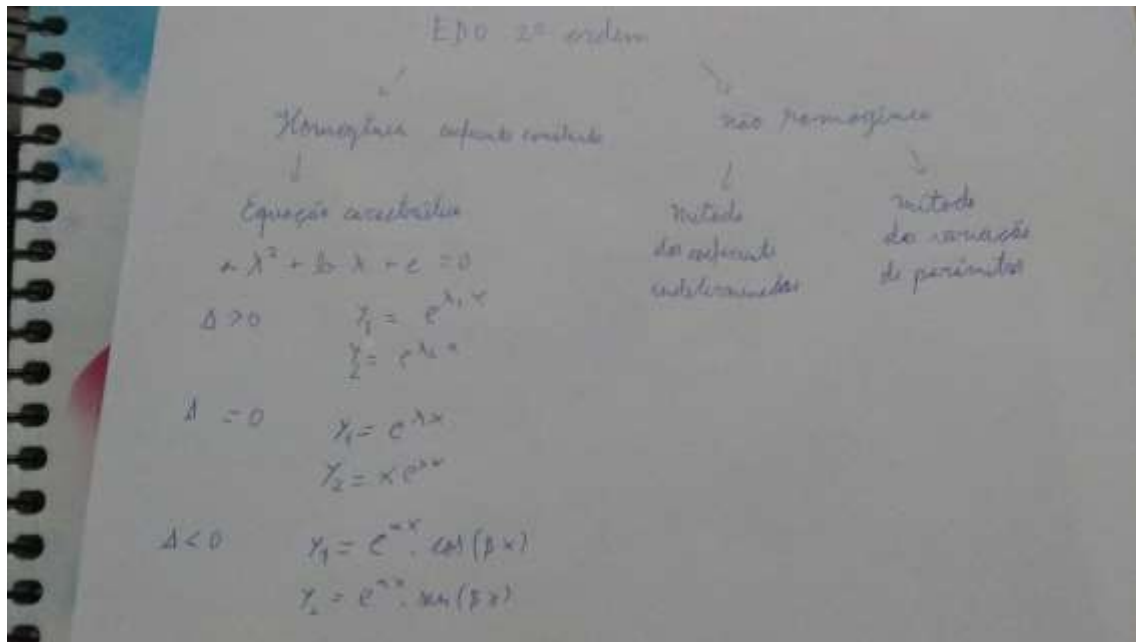 EDO 2ª ordem
Homogênea coeficiente constante
não homogênea
Equação característica
a λ² + b λ + c = 0
Δ > 0
y₁ = e^λ₁x
y₂ = e^λ₂x
Δ = 0
y₁ = e^λx
y₂ = x e^λx
Δ < 0
y₁ = e^αx . cos(βx)
y₂ = e^αx . sen(βx)
método
dos coeficiente
indeterminados
método
da variação
de parâmetros